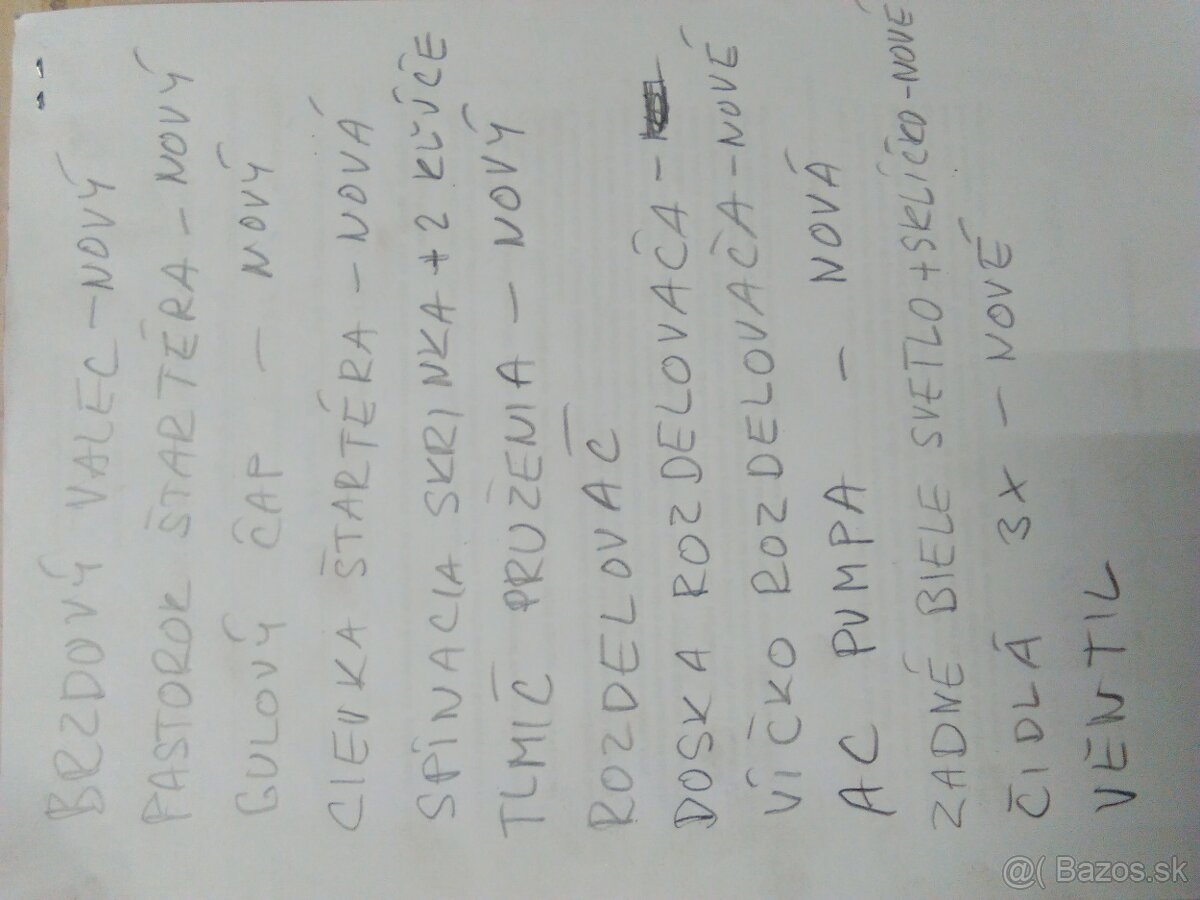 BRZDOVÝ VALEC – NOVÝ
PASTOROK ŠTARTÉRA – NOVÝ
GULOVÝ ČAP – NOVÝ
CIEVKA ŠTARTÉRA – NOVÁ
SPÍNACIA SKRINKA + 2 KLÚČE
TLMIČ PRUŽENIA – NOVÝ
ROZDELOVAČ
DOSKA ROZDELOVAČA –
VÍČKO ROZDELOVAČA – NOVÉ
AC PUMPA – NOVÁ
ZADNÉ BIELE SVETLO + SKLÍČKO – NOVÉ
ČIDLÁ 3X – NOVÉ
VENTIL
@( Bazos.sk